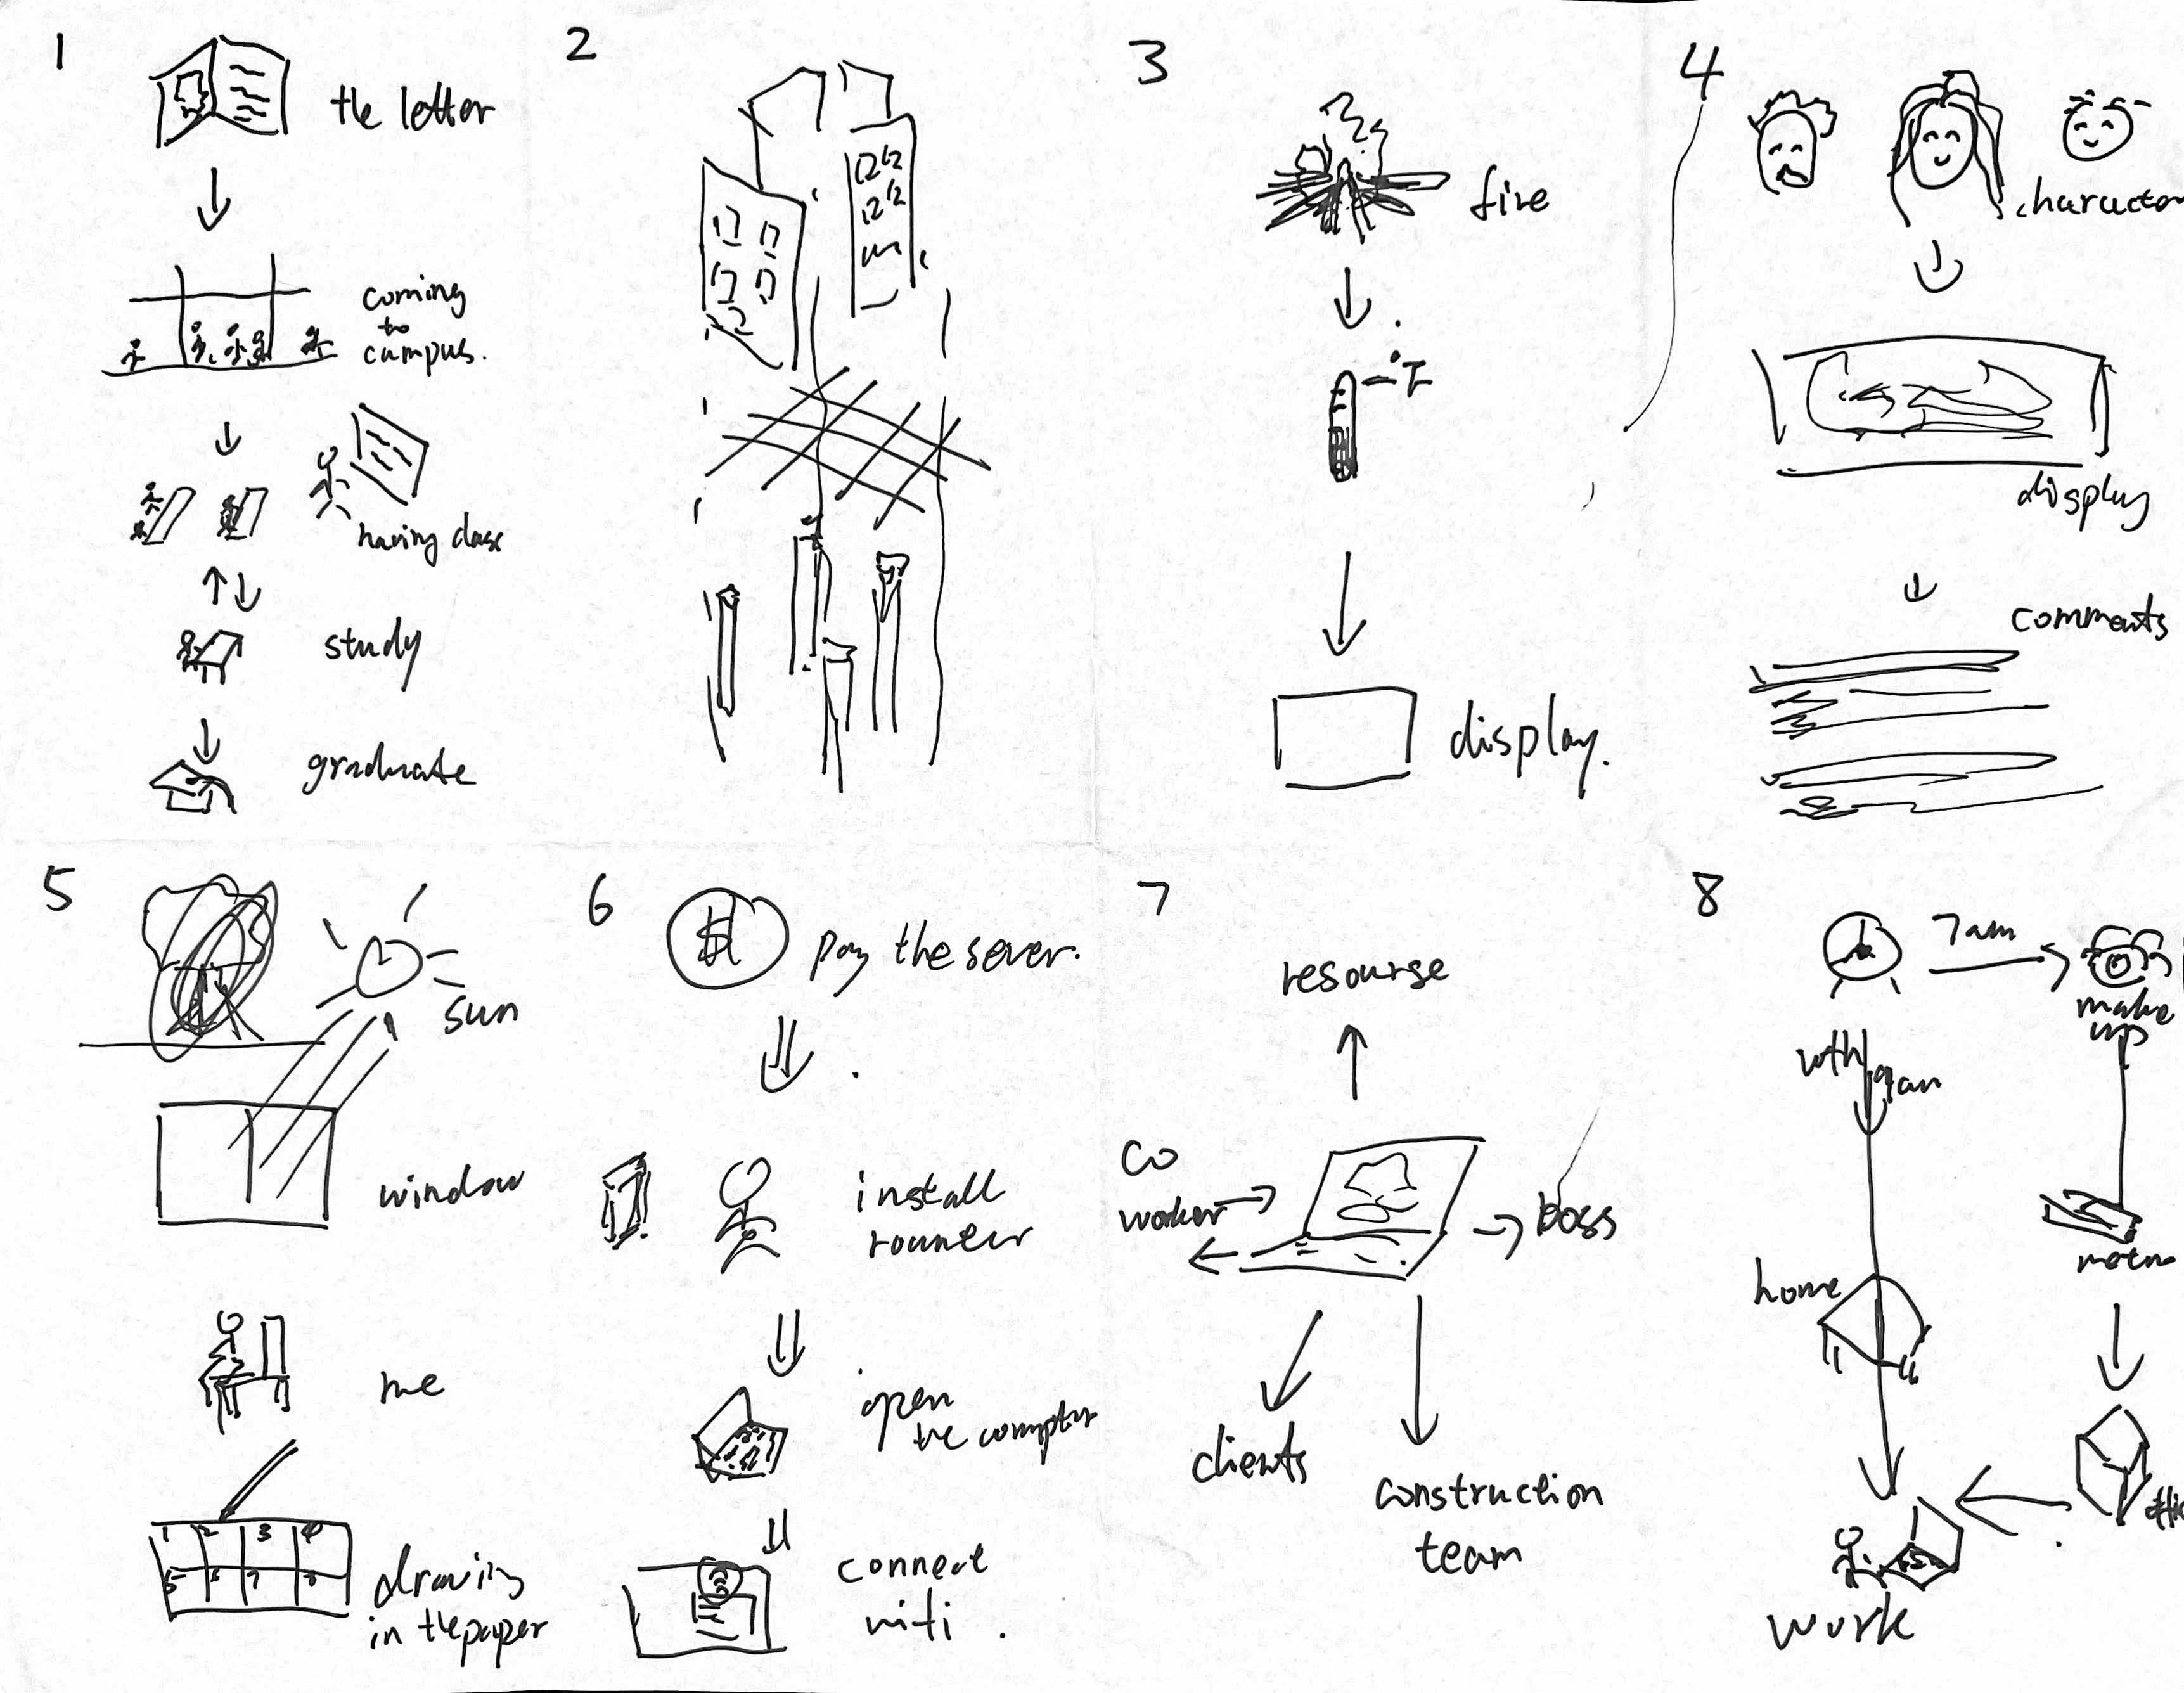 1
the letter
coming
to
campus.
having class
study
graduate
2
3
fire
°F
display.
4
character
display
comments
5
sun
window
me
1 2 3 4
5 6 7 8
drawing
in the paper
6
pay the sever.
install
rounter
open
the computer
connect
wifi.
7
resourse
co
worker
boss
clients
construction
team
8
7am
make
up
9am
home
work